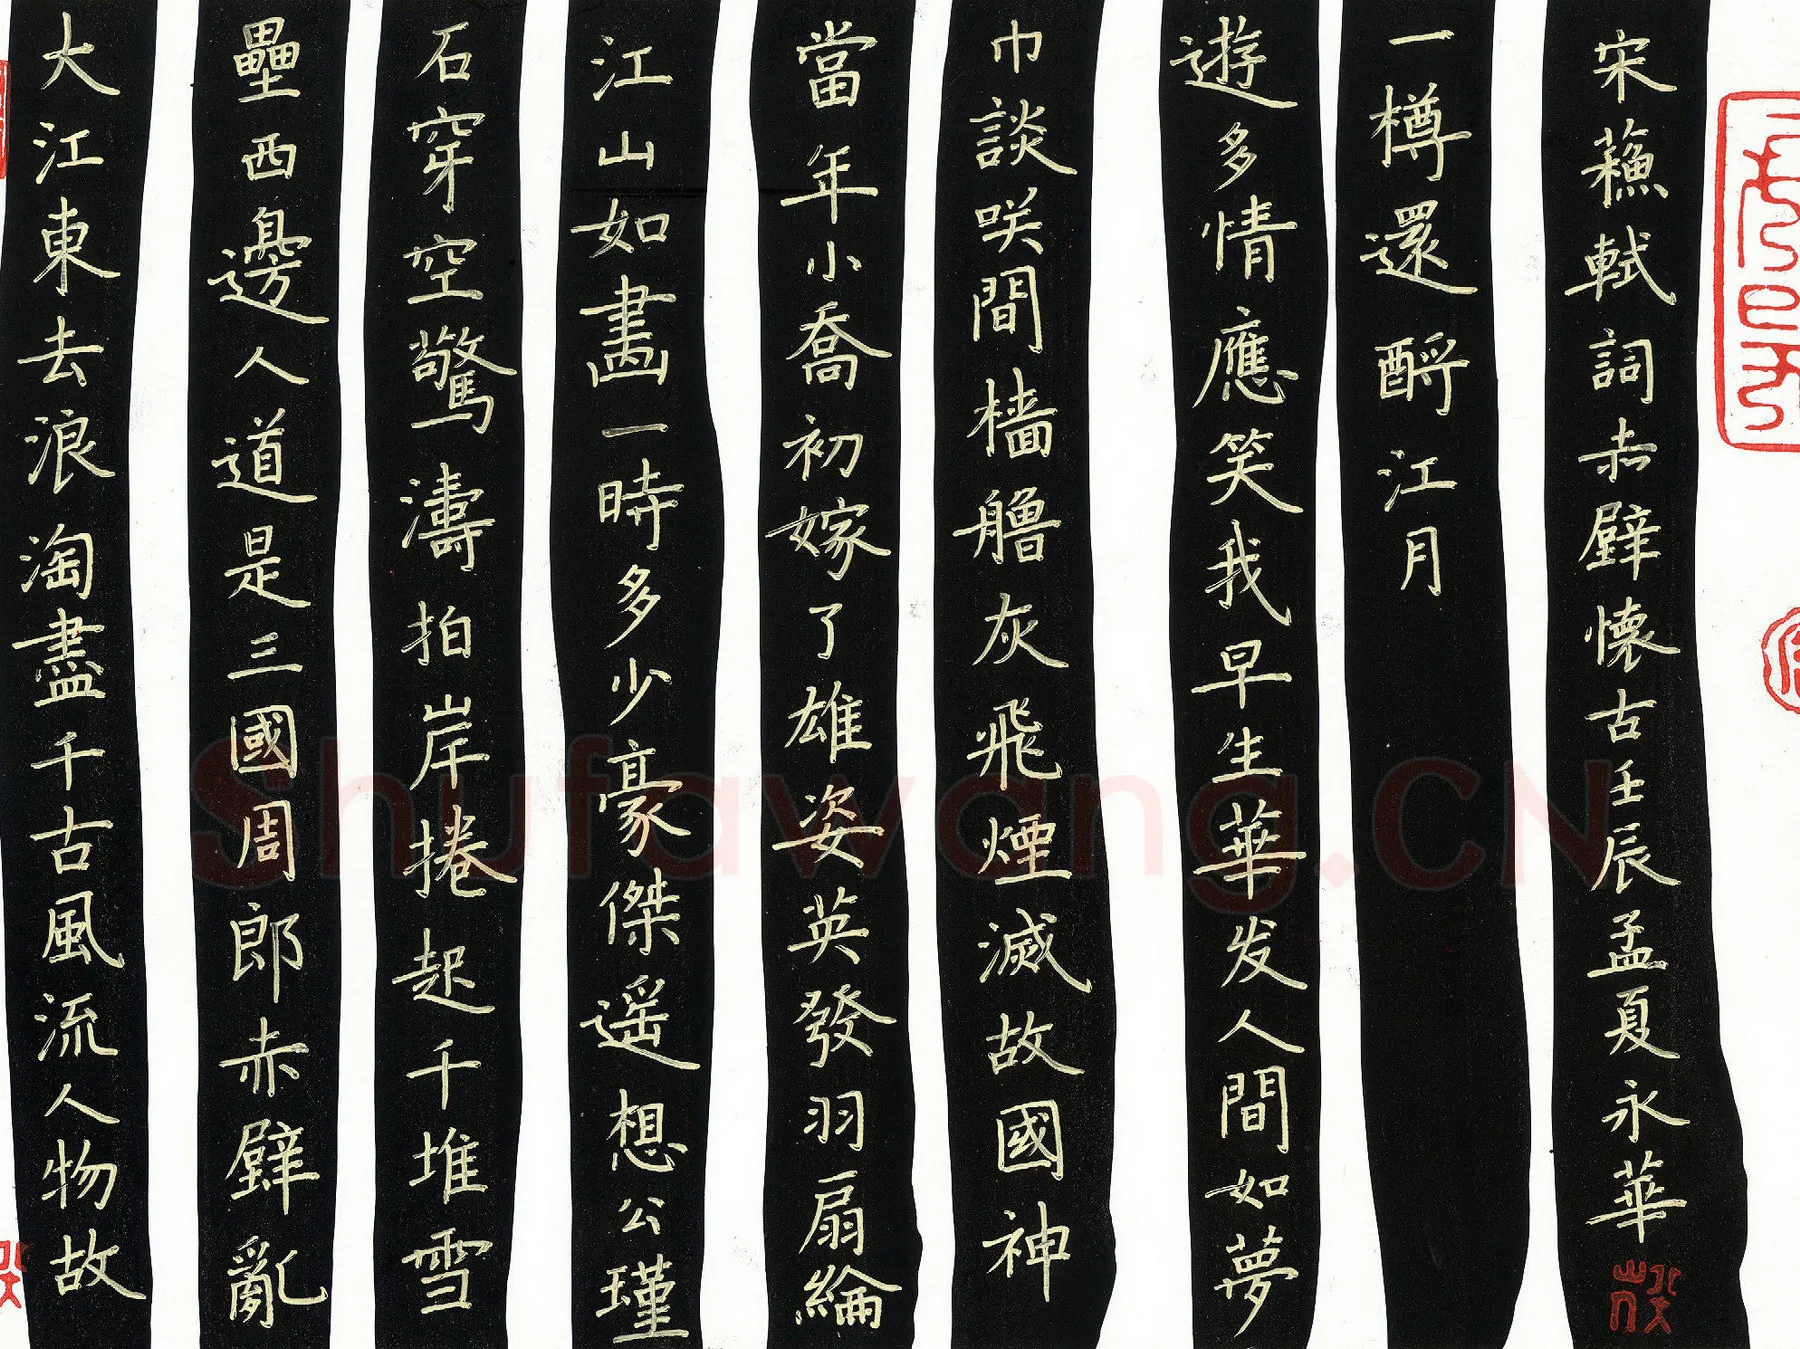 大江東去浪淘盡千古風流人物故
壘西邊人道是三國周郎赤壁亂
石穿空驚濤拍岸捲起千堆雪
江山如畫一時多少豪傑遥想公瑾
當年小喬初嫁了雄姿英發羽扇綸
巾談咲間檣艣灰飛煙滅故國神
遊多情應笑我早生華发人間如夢
一樽還酹江月
宋蘓軾詞赤壁懷古壬辰孟夏永華
Shufawang.CN